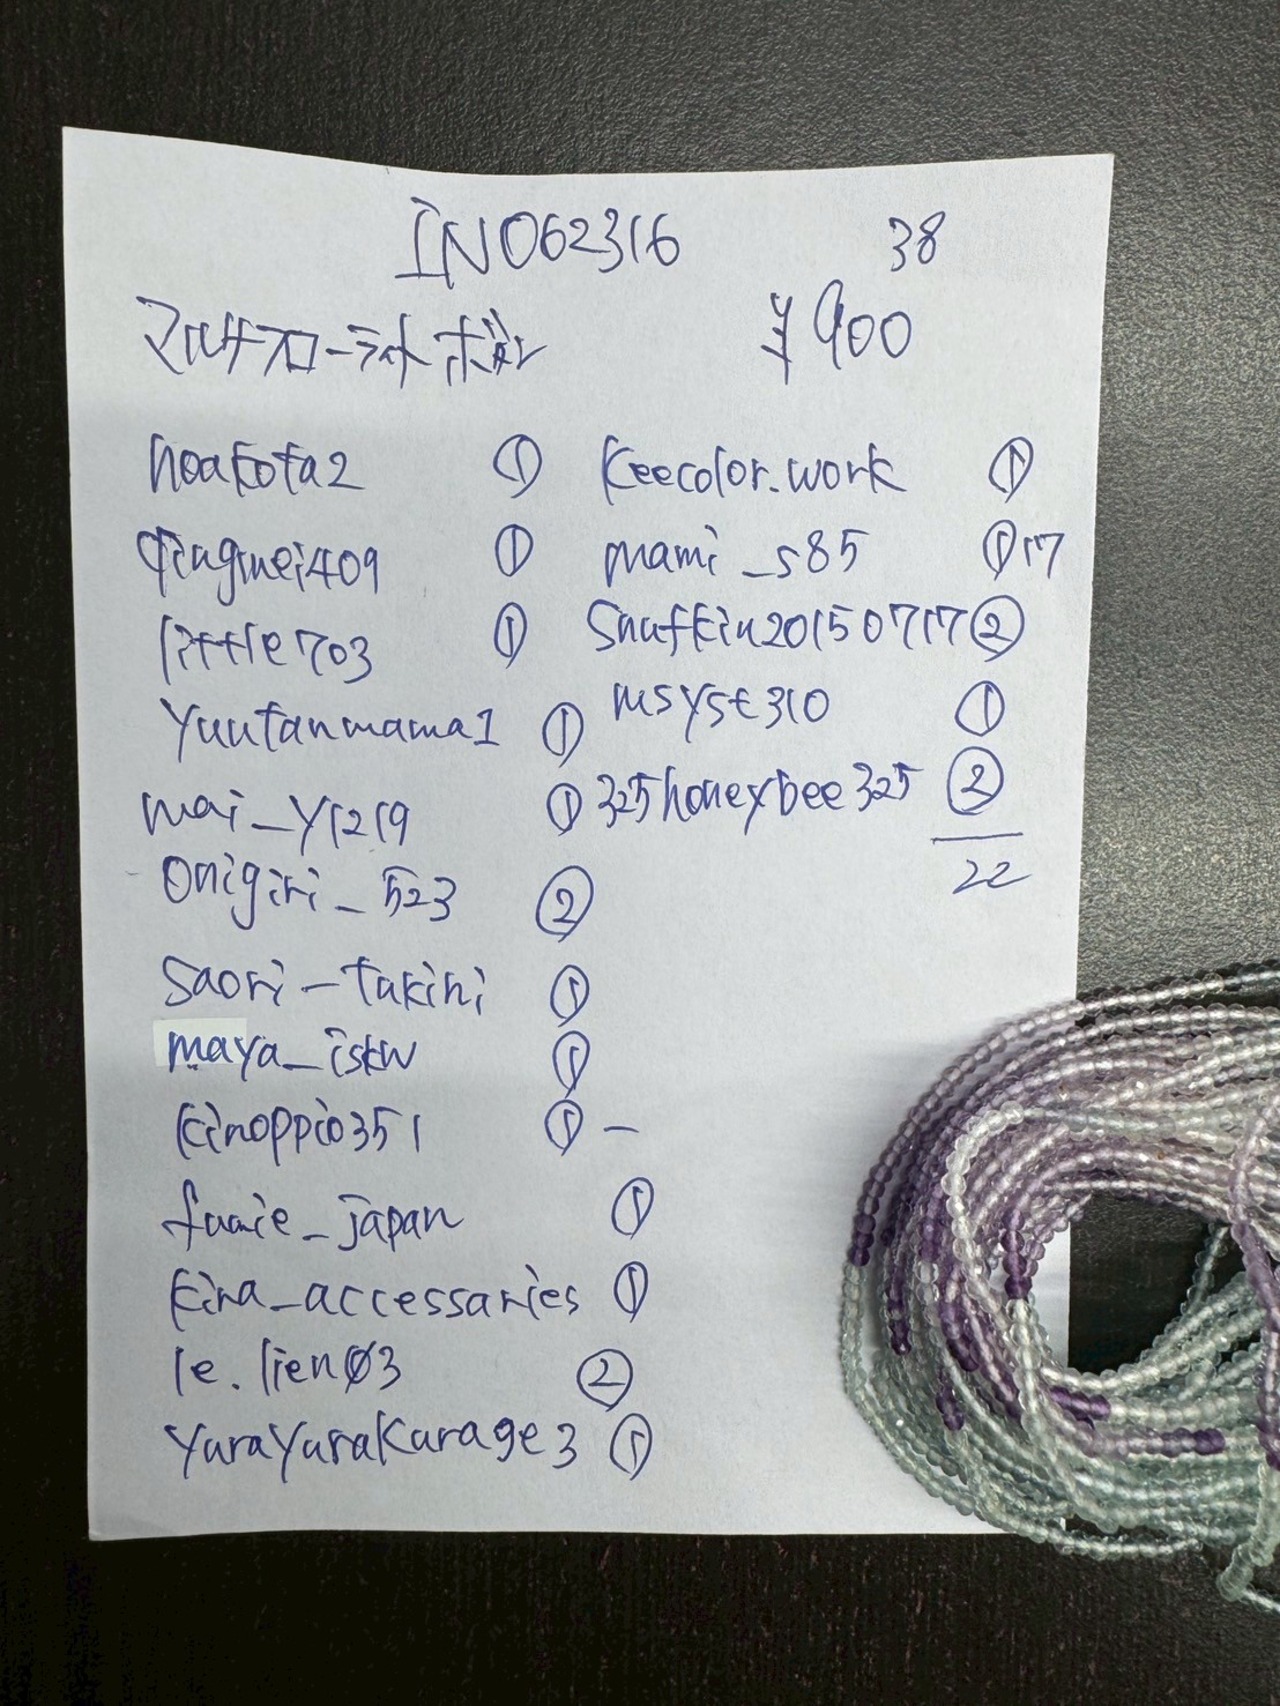 INO62316 38
マルチフローライトボタン ¥900
hoakota2 ①
qingmei409 ①
little703 ①
Yuutanmama1 ①
mai_y1219 ①
onigiri_523 ②
saori-takihi ①
maya_iskw ①
kinoppio351 ① –
fumie_japan ①
kira_accessaries ①
le.lien03 ②
yurayurakurage3 ①
keecolor.work ①
mami_s85 ① 17
Snufkin20150717 ②
msyst310 ①
325honeybee325 ②
22